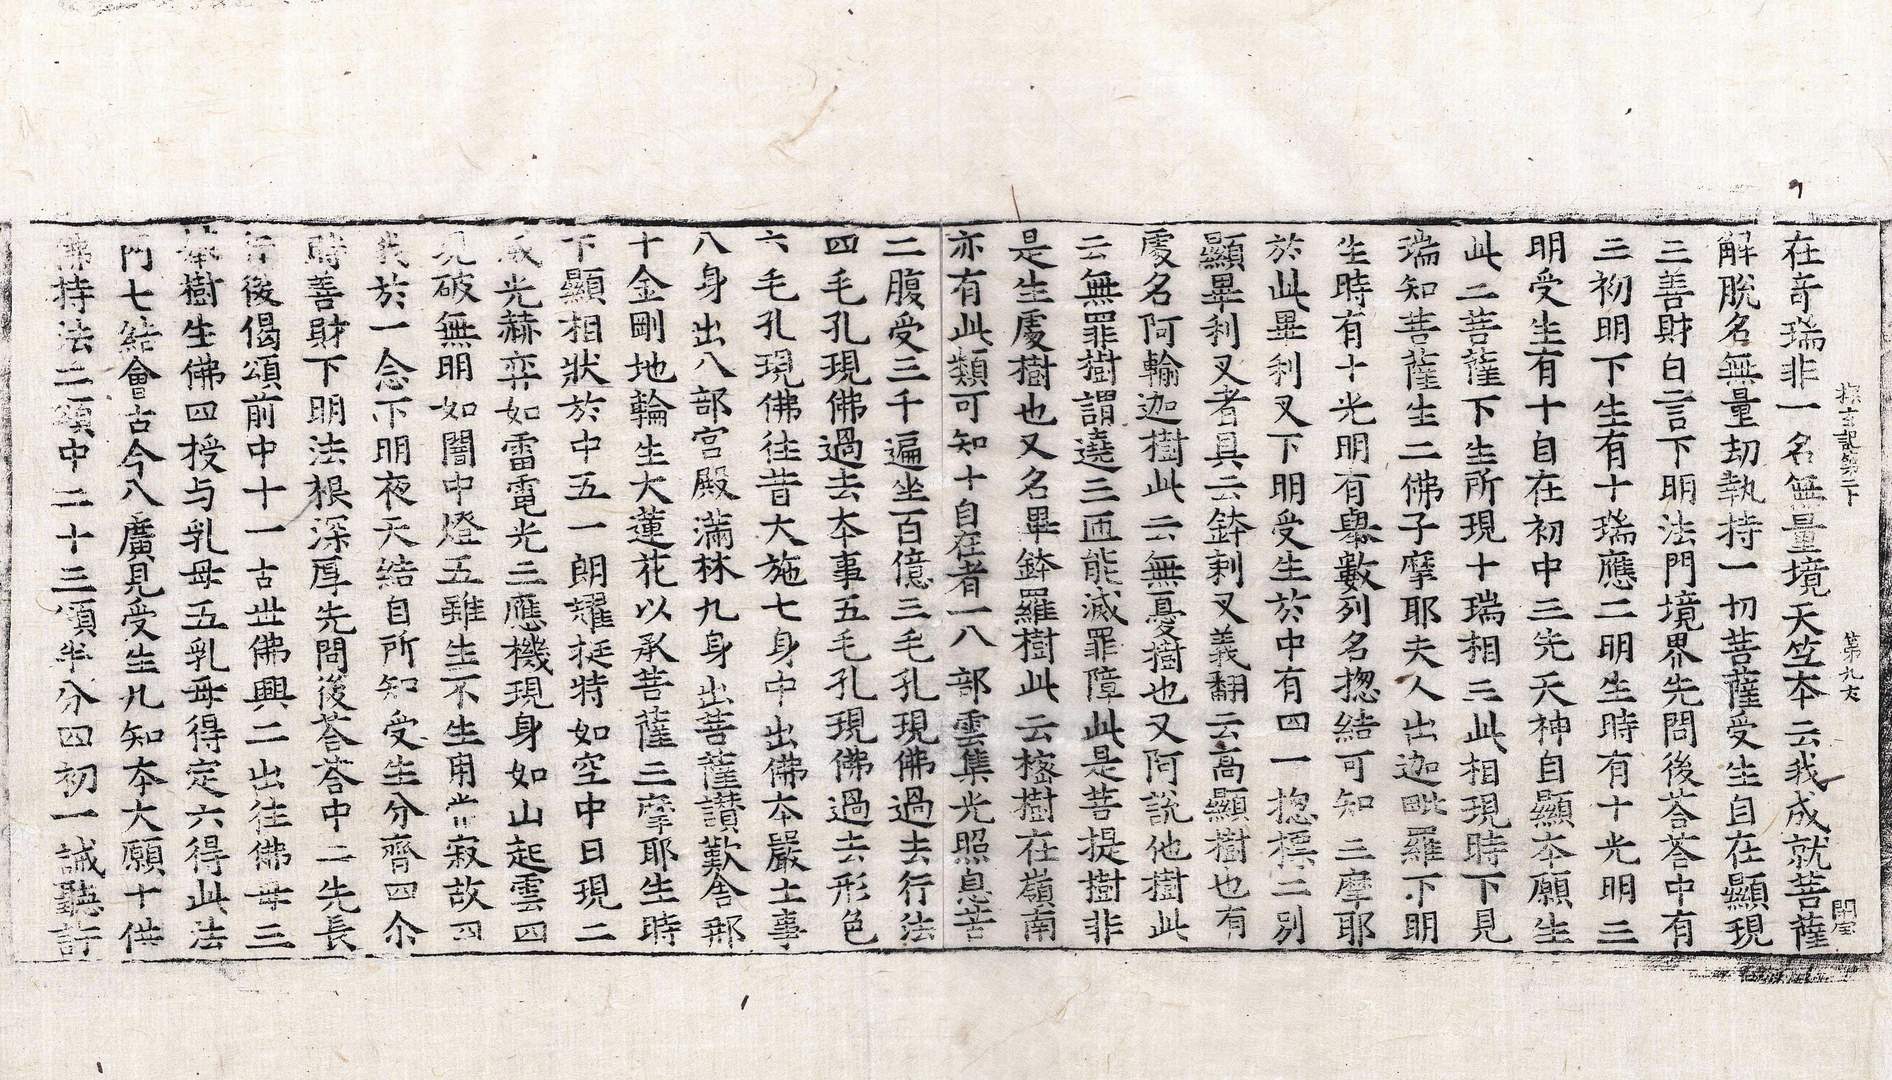 搜玄記第二下 第九丈
在奇瑞非一名無量境天竺本云我成就菩薩
解脫名無量劫執持一切菩薩受生自在顯現
三善財白言下明法門境界先問後荅荅中有
三初明下生有十瑞應二明生時有十光明三
明受生有十自在初中三先天神自顯本願生
此二菩薩下生所現十瑞相三此相現時下見
瑞知菩薩生二佛子摩耶夫人出迦毗羅下明
生時有十光明有舉數列名揔結可知三摩耶
於此畢利叉下明受生於中有四一揔標二別
顯畢利叉者具云鉢剌叉義翻云高顯樹也有
處名阿輸迦樹此云無憂樹也又阿說他樹此
云無罪樹謂遶三匝能滅罪障此是菩提樹非
是生處樹也又名畢鉢羅樹此云榕樹在嶺南
亦有此類可知十自在者一八部雲集光照息苦
二腹受三千遍坐百億三毛孔現佛過去行法
四毛孔現佛過去本事五毛孔現佛過去形色
六毛孔現佛往昔大施七身中出佛本嚴土事
八身出八部宮殿滿林九身出菩薩讃歎舍那
十金剛地輪生大蓮花以承菩薩三摩耶生時
下顯相狀於中五一朗耀挺特如空中日現二
威光赫弈如雷電光三應機現身如山起雲四
現破無明如闇中燈五雖生不生用常寂故四
我於一念下明夜天結自所知受生分齊四尒
時善財下明法根深厚先問後荅荅中二先長
行後偈頌前中十一古世佛興二出往佛母三
攀樹生佛四授与乳母五乳母得定六得此法
門七結會古今八廣見受生九知本大願十供
佛持法二頌中二十三頌半分四初一誡聽許